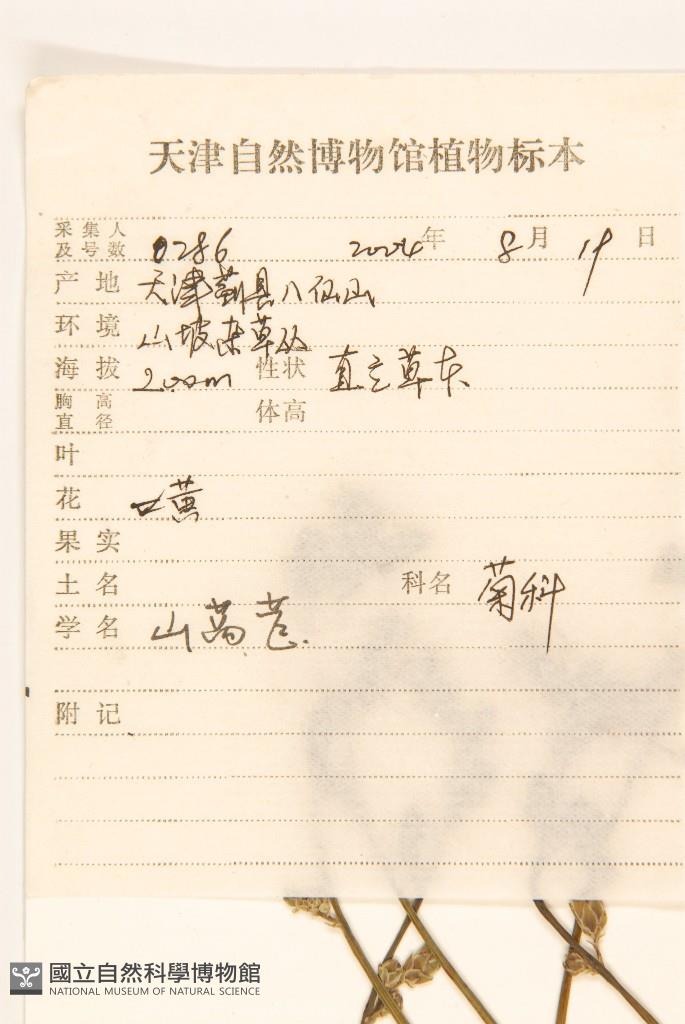 天津自然博物馆植物标本
采集人及号数 0286 2004年 8月 19日
产地 天津蓟县八仙山
环境 山坡杂草丛
海拔 200m 性状 直立草本
胸高直径 体高
叶
花 黄
果实
土名 科名 菊科
学名 山莴苣.
附记
國立自然科學博物館
NATIONAL MUSEUM OF NATURAL SCIENCE